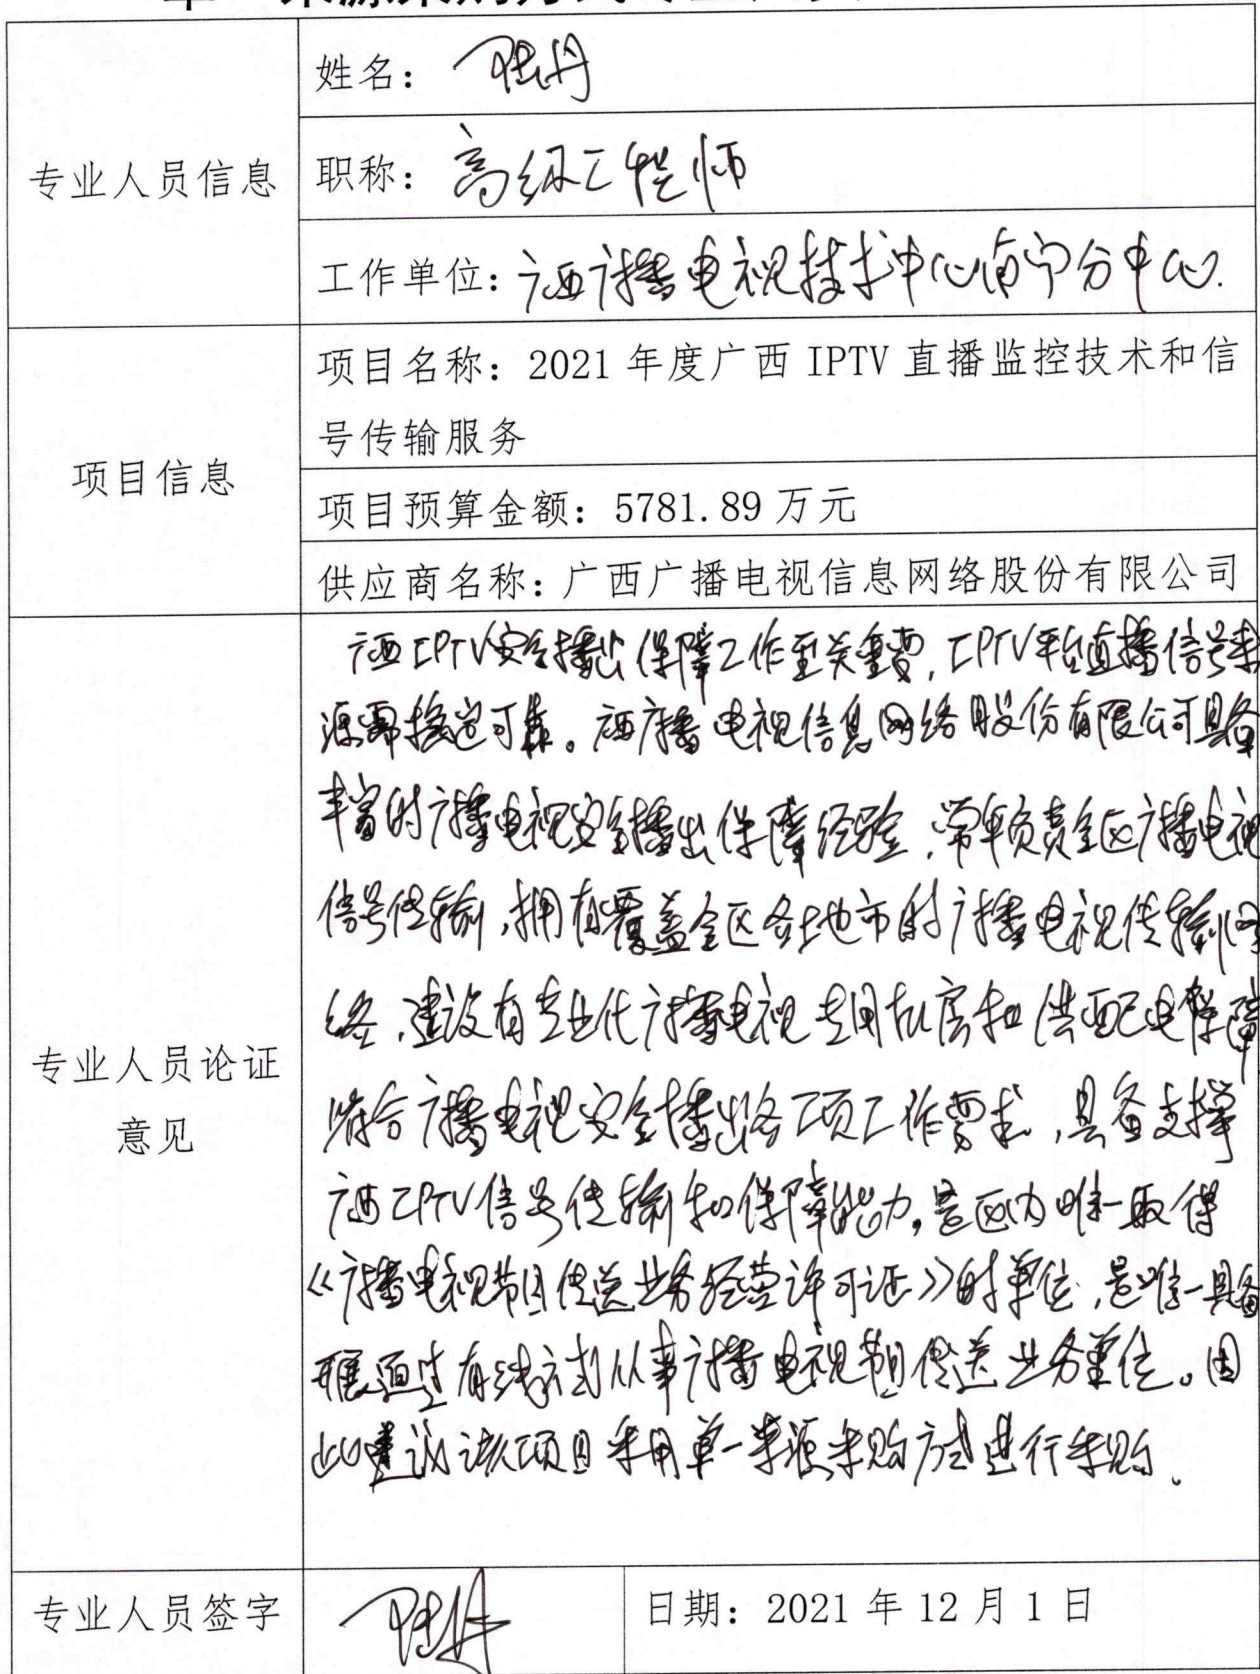 姓名：陆丹
职称：高级工程师
专业人员信息
工作单位：广西广播电视技术中心南宁分中心.
项目名称：2021 年度广西 IPTV 直播监控技术和信
号传输服务
项目信息
项目预算金额：5781.89 万元
供应商名称：广西广播电视信息网络股份有限公司
广西IPTV安全播出保障工作至关重要，IPTV平台直播信号来
源需稳定可靠。广西广播电视信息网络股份有限公司具备
丰富的广播电视安全播出保障经验，常年负责全区广播电视
信号传输，拥有覆盖全区各地市的广播电视传输网
络，建设有专业化广播电视专用机房和供配电保障
专业人员论证
意见
符合广播电视安全播出各项工作需求，具备支撑
广西IPTV信号传输和保障能力，是区内唯一取得
《广播电视节目传送业务经营许可证》的单位，是唯一具备
开展通过有线方式从事广播电视节目传送业务单位。因
此建议该项目采用单一来源采购方式进行采购。
专业人员签字
陆丹
日期：2021 年 12 月 1 日